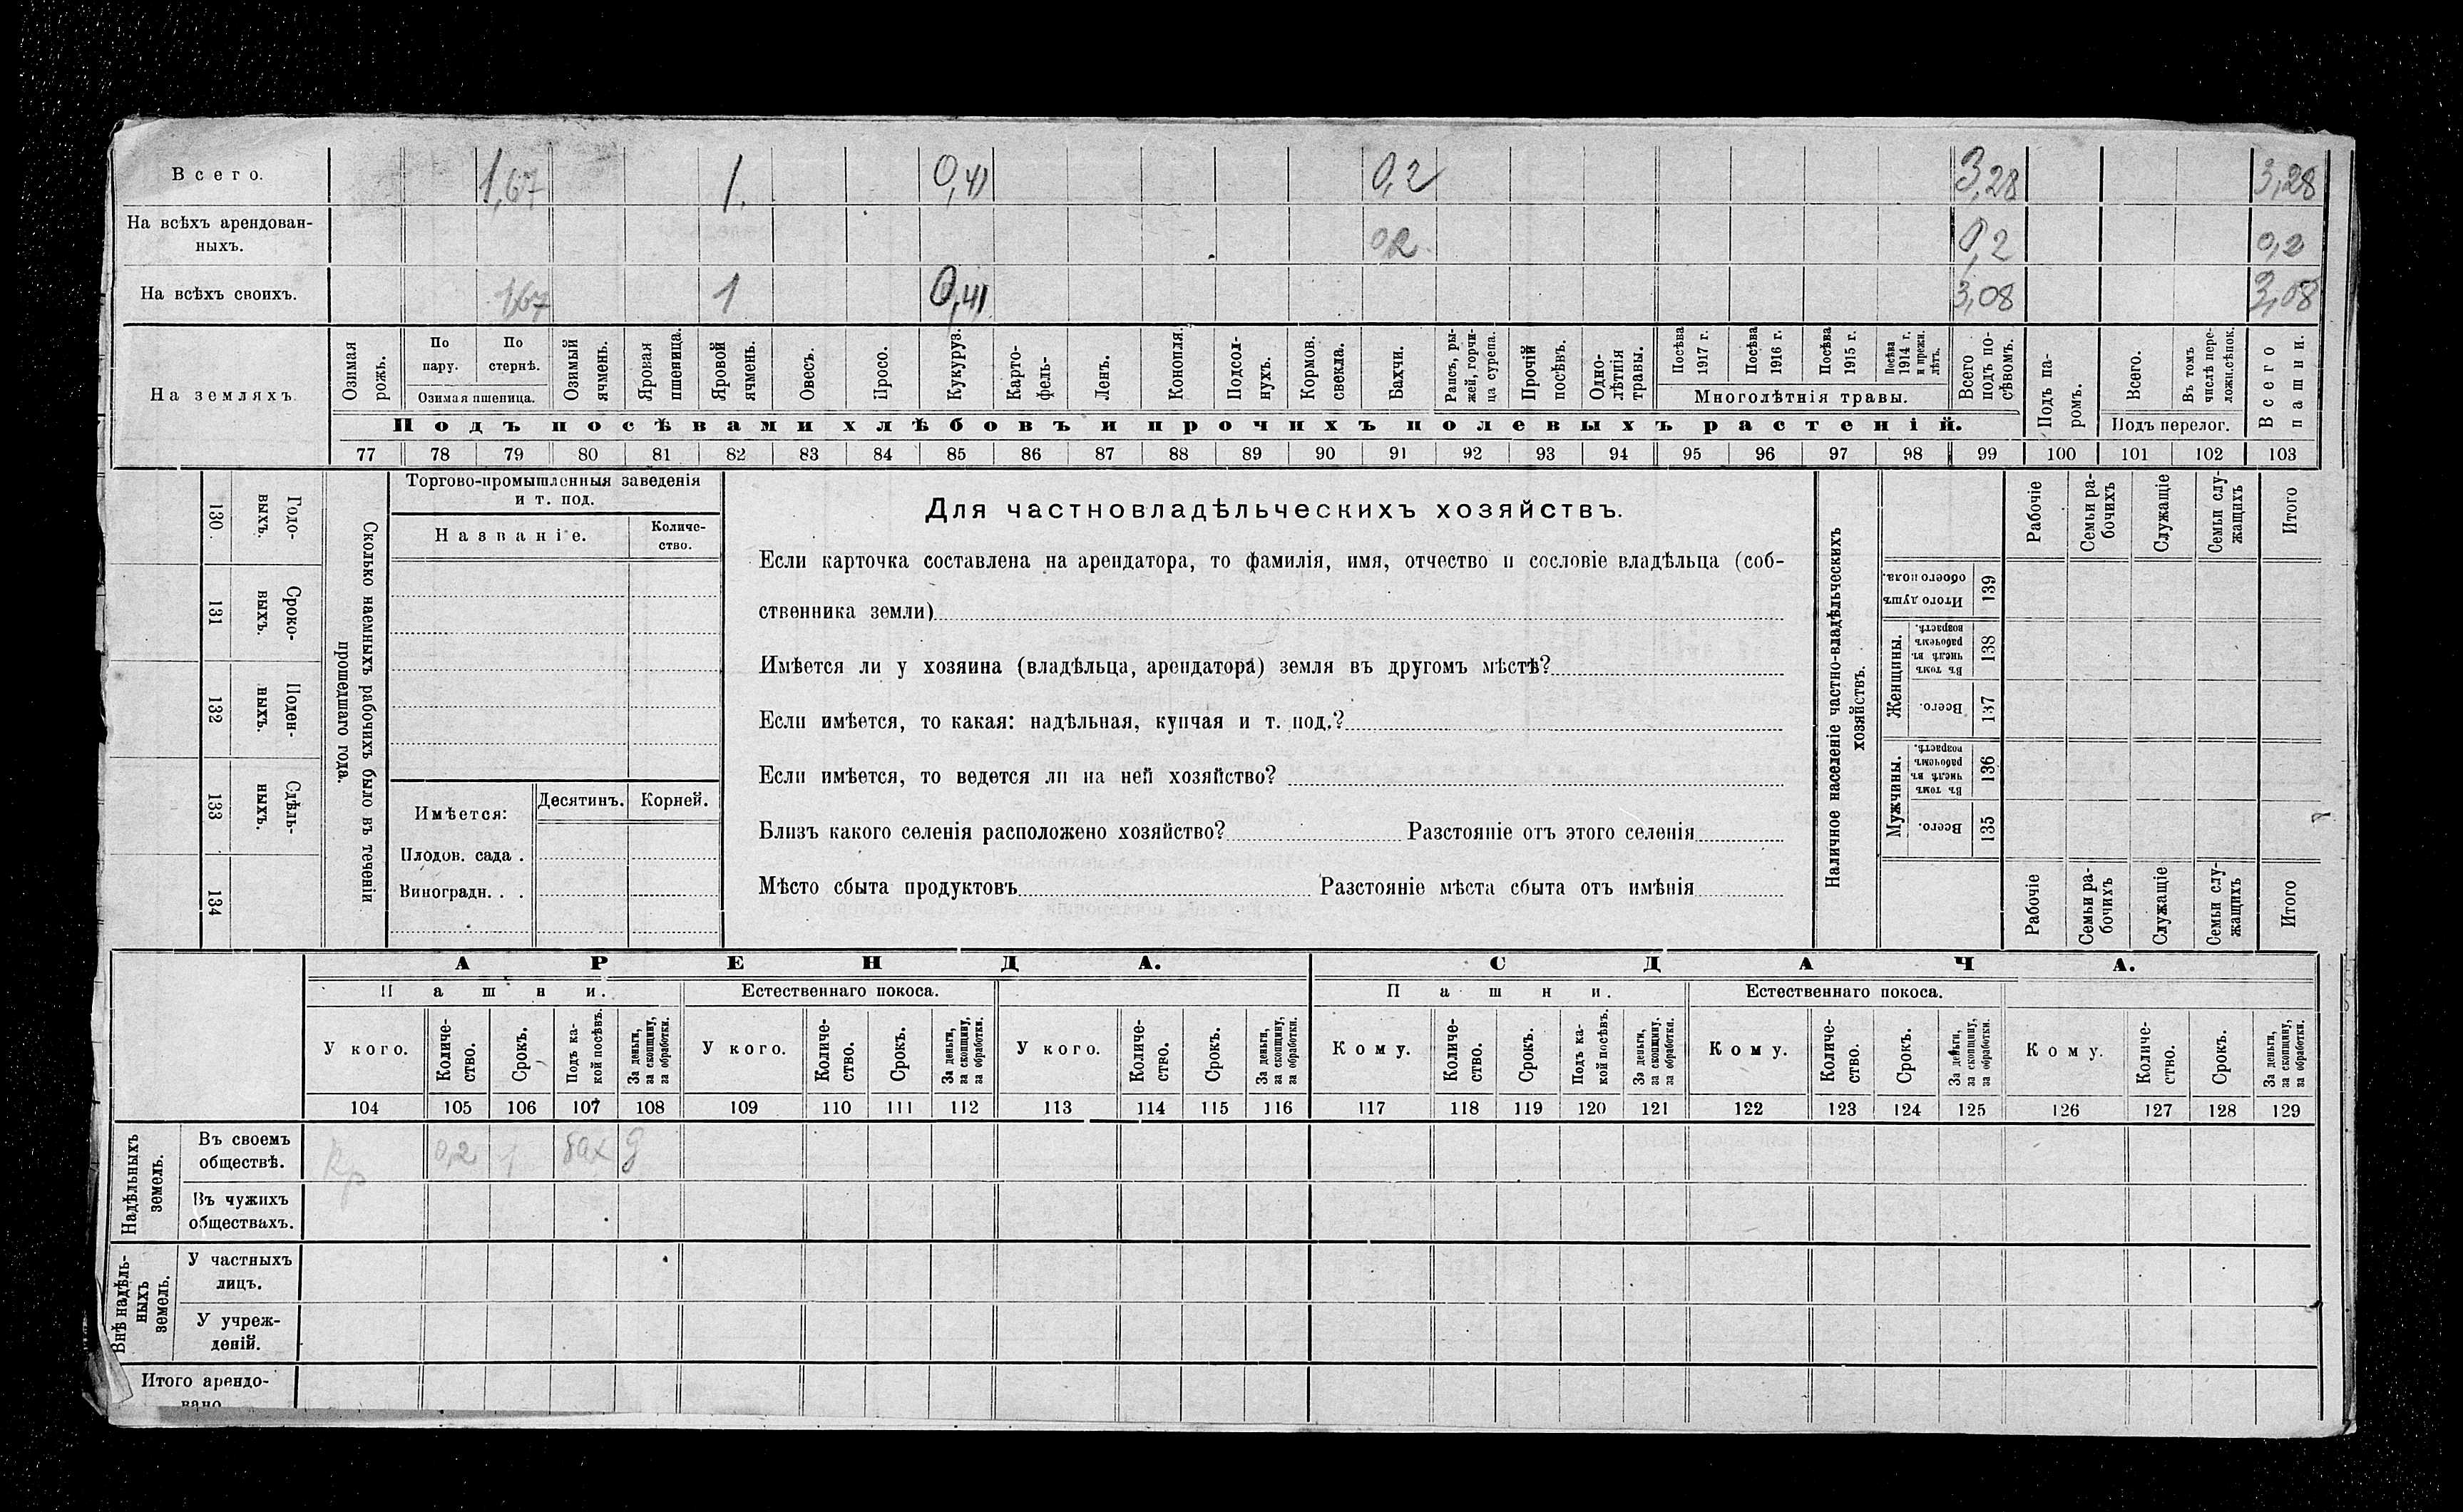 Всего. 1,67 1. 0,41 0,2 3,28 3,28
На всѣхъ арендован-
ныхъ. 0,2 0,2 0,2
На всѣхъ своихъ. 1,67 1 0,41 3,08 3,08
На земляхъ.
Озимая рожь.
По пару.
По стернѣ.
Озимая пшеница.
Озимый ячмень.
Яровая пшеница.
Яровой ячмень.
Овесъ.
Просо.
Кукуруз.
Карто-
фель-
Ленъ.
Конопля.
Подсол-
нухъ.
Кормов. свекла.
Бахчи.
Рапсъ, ры-
жей, горчи-
ца сурепа.
Прочій посѣвъ.
Одно-
лѣтнія травы.
Посѣва 1917 г.
Посѣва 1916 г.
Посѣва 1915 г.
Посѣва 1914 г. и прежн. лѣтъ.
Многолѣтнія травы.
Всего подъ по-
сѣвомъ.
Подъ па-
ромъ.
Всего.
Въ томъ числѣ пере-
ложн.сѣнок.
Подъ перелог.
Всего пашни.
Подъ посѣвами хлѣбовъ и прочихъ полевыхъ растеній.
77 78 79 80 81 82 83 84 85 86 87 88 89 90 91 92 93 94 95 96 97 98 99 100 101 102 103
130 Годо-
выхъ.
131 Сроко-
выхъ.
132 Поден-
ныхъ.
133 Сдѣль-
ныхъ.
134
Сколько наемныхъ рабочихъ было въ теченіи
прошедшаго года.
Торгово-промышленныя заведенія
и т. под.
Названіе.
Количе-
ство.
Имѣется: Десятинъ. Корней.
Плодов. сада .
Виноградн. . .
Для частновладѣльческихъ хозяйствъ.
Если карточка составлена на арендатора, то фамилія, имя, отчество и сословіе владѣльца (соб-
ственника земли)
Имѣется ли у хозяина (владѣльца, арендатора) земля въ другомъ мѣстѣ?
Если имѣется, то какая: надѣльная, купчая и т. под.?
Если имѣется, то ведется ли на ней хозяйство?
Близъ какого селенія расположено хозяйство? Разстояніе отъ этого селенія
Мѣсто сбыта продуктовъ Разстояніе мѣста сбыта отъ имѣнія
Наличное населеніе частно-владѣльческихъ
хозяйствъ.
Рабочіе
Семьи ра-
бочихъ
Служащіе
Семьи слу-
жащихъ
Итого
Итого душъ
обоего пола. 139
Женщины.
Въ томъ числѣ въ рабочемъ возрастѣ. 138
Всего. 137
Мужчины.
Въ томъ числѣ въ рабочемъ возрастѣ. 136
Всего. 135
Рабочіе
Семьи ра-
бочихъ
Служащіе
Семьи слу-
жащихъ
Итого
АРЕНДА. СДАЧА.
Пашни. Естественнаго покоса. Пашни. Естественнаго покоса.
У кого.
Количе-
ство.
Срокъ.
Подъ ка-
кой посѣвъ.
За деньги,
за скопщину,
за обработки.
У кого.
Количе-
ство.
Срокъ.
За деньги,
за скопщину,
за обработки.
У кого.
Количе-
ство.
Срокъ.
За деньги,
за скопщину,
за обработки.
Кому.
Количе-
ство.
Срокъ.
Подъ ка-
кой посѣвъ.
За деньги,
за скопщину.
за обработки.
Кому.
Количе-
ство.
Срокъ.
За деньги,
за скопщину,
за обработки.
Кому.
Количе-
ство.
Срокъ.
За деньги,
за скопщину,
за обработки.
104 105 106 107 108 109 110 111 112 113 114 115 116 117 118 119 120 121 122 123 124 125 126 127 128 129
Надѣльныхъ
земель.
Въ своемъ
обществѣ. Кр 0,2 1 бах д
Въ чужихъ
обществахъ.
Внѣ надѣль-
ныхъ
земель.
У частныхъ
лицъ.
У учреж-
деній.
Итого арендо-
вано